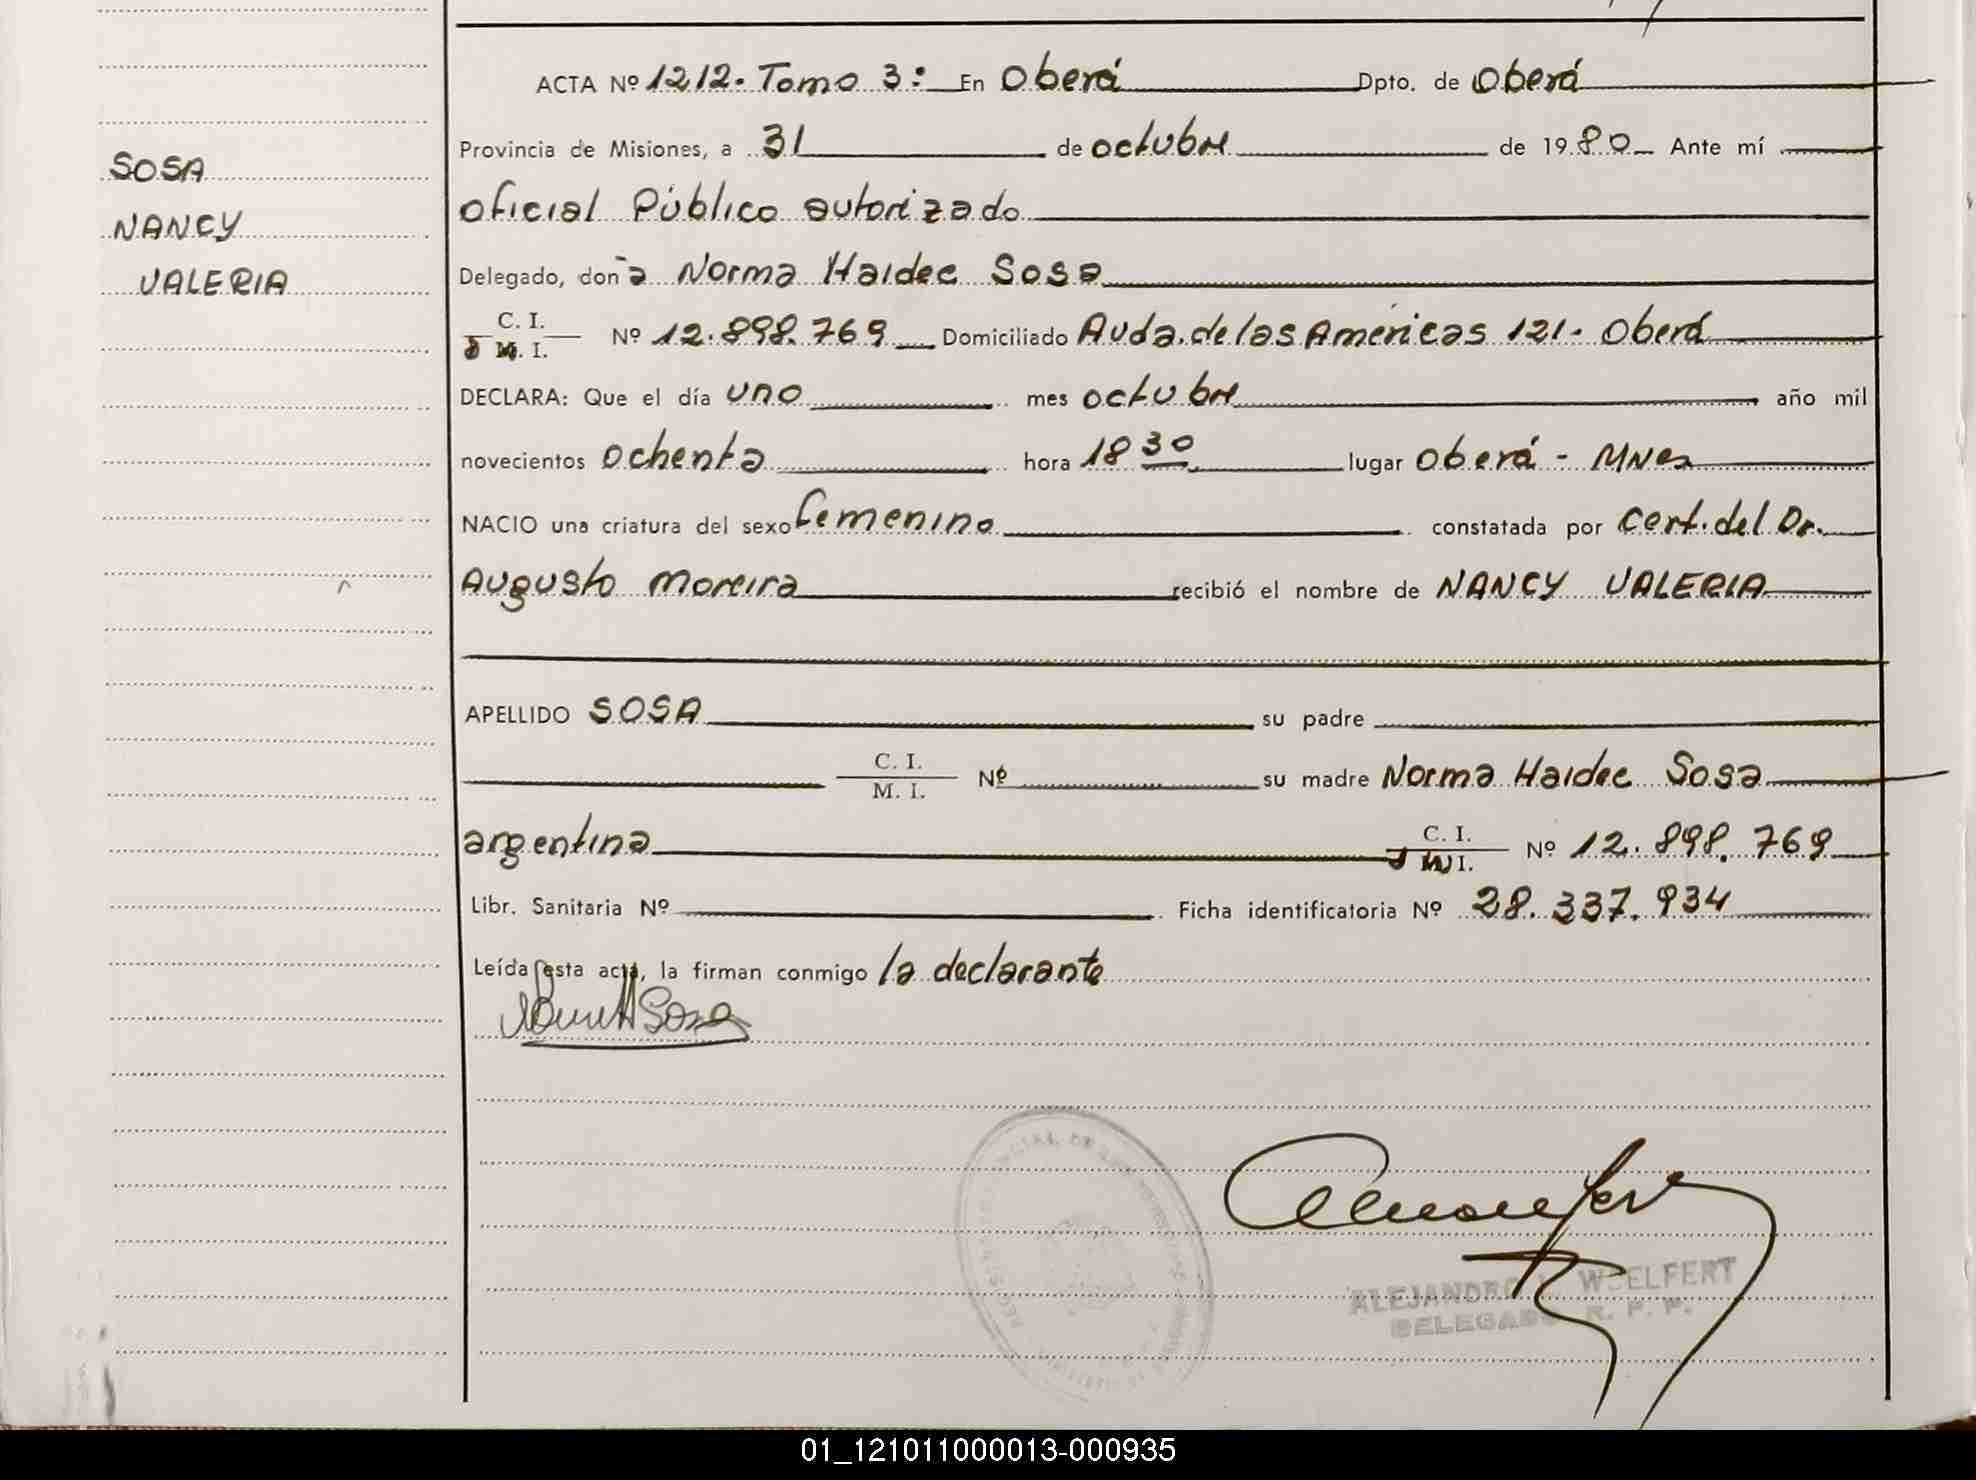 SOSA
NANCY
VALERIA
ACTA Nº 1212. Tomo 3: En Oberá Dpto. de Oberá
Provincia de Misiones, a 31 de octubre de 1980 Ante mí
Oficial Público autorizado
Delegado, doña Norma Haidee Sosa
C. I.
D M. I. Nº 12.898.769 Domiciliado Avda. de las Américas 121 - Oberá
DECLARA: Que el día uno mes octubre año mil
novecientos ochenta hora 18 30 lugar Oberá - MNes
NACIO una criatura del sexo femenino constatada por Cert. del Dr.
Augusto Moreira recibió el nombre de NANCY VALERIA
APELLIDO SOSA su padre
C. I.
M. I. Nº su madre Norma Haidee Sosa
argentina C. I. Nº 12.898.769
Libr. Sanitaria Nº Ficha identificatoria Nº 28.337.934
Leída esta acta, la firman conmigo la declarante
Sosa
ALEJANDRO WOELFERT
DELEGADO R. P. P.
01_121011000013-000935